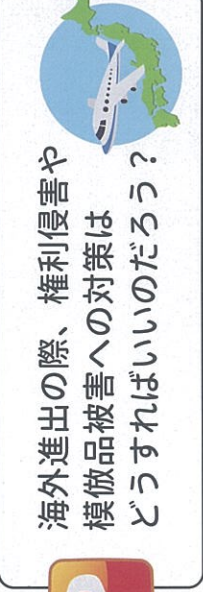 海外進出の際、権利侵害や
模倣品被害への対策は
どうすればいいのだろう？